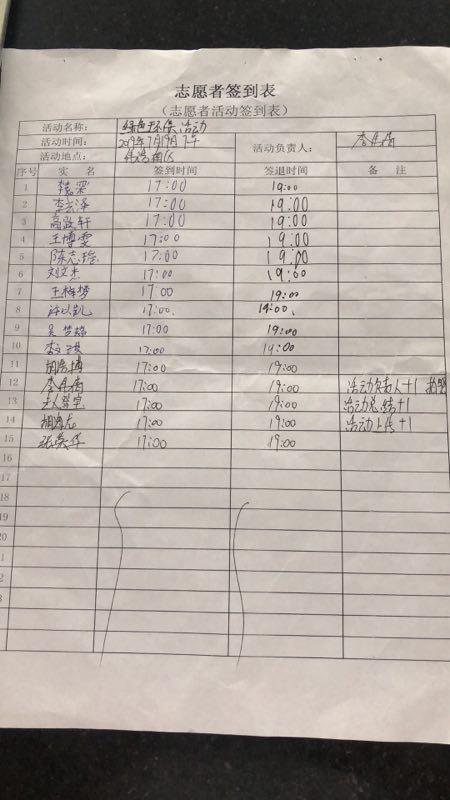 志愿者签到表
（志愿者活动签到表）
活动名称： 绿色环保活动
活动时间： 2019年7月19日下午 活动负责人：
活动地点：
序号 实 名 签到时间 签退时间 备 注
1 17:00 19:00
2 李云泽 17:00 19:00
3 高政轩 17:00 19:00
4 王博雯 17:00 19:00
5 17:00 19:00
6 刘文杰 17:00 19:00
7 王梅梦 17:00 19:00
8 许以凯 17:00 19:00
9 17:00 19:00
10 17:00 19:00
11 17:00 19:00
12 17:00 19:00 活动负责人+1
13 17:00 19:00 活动总结+1
14 17:00 19:00 活动上传+1
15 17:00 19:00
16
17
18
19
20
1
2
3